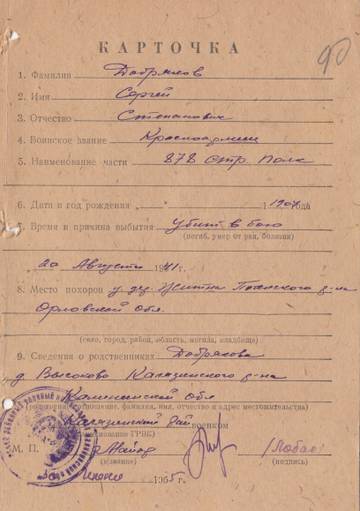 90
КАРТОЧКА
1. Фамилия Добряков
2. Имя Сергей
3. Отчество Степанович
4. Воинское звание Красноармеец
5. Наименование части 878 Стр. Полк
6. Дата и год рождения 190 года
7. Время и причина выбытия Убит в бою
(погиб, умер от ран, болезни)
20 Августа 41 г.
8. Место похорон у дер. р-на
Орловской Обл.
(село, город, район, область, могила, кладбище)
9. Сведения о родственниках Добрякова
д. Высоково Калязинского р-на
Калининской Обл
(родственное отношение, фамилия, имя, отчество и адрес местожительства)
Калязинский Рай военком
(наименование ГРВК)
М. П. Майор
(звание) (подпись)
Июня 1955 г